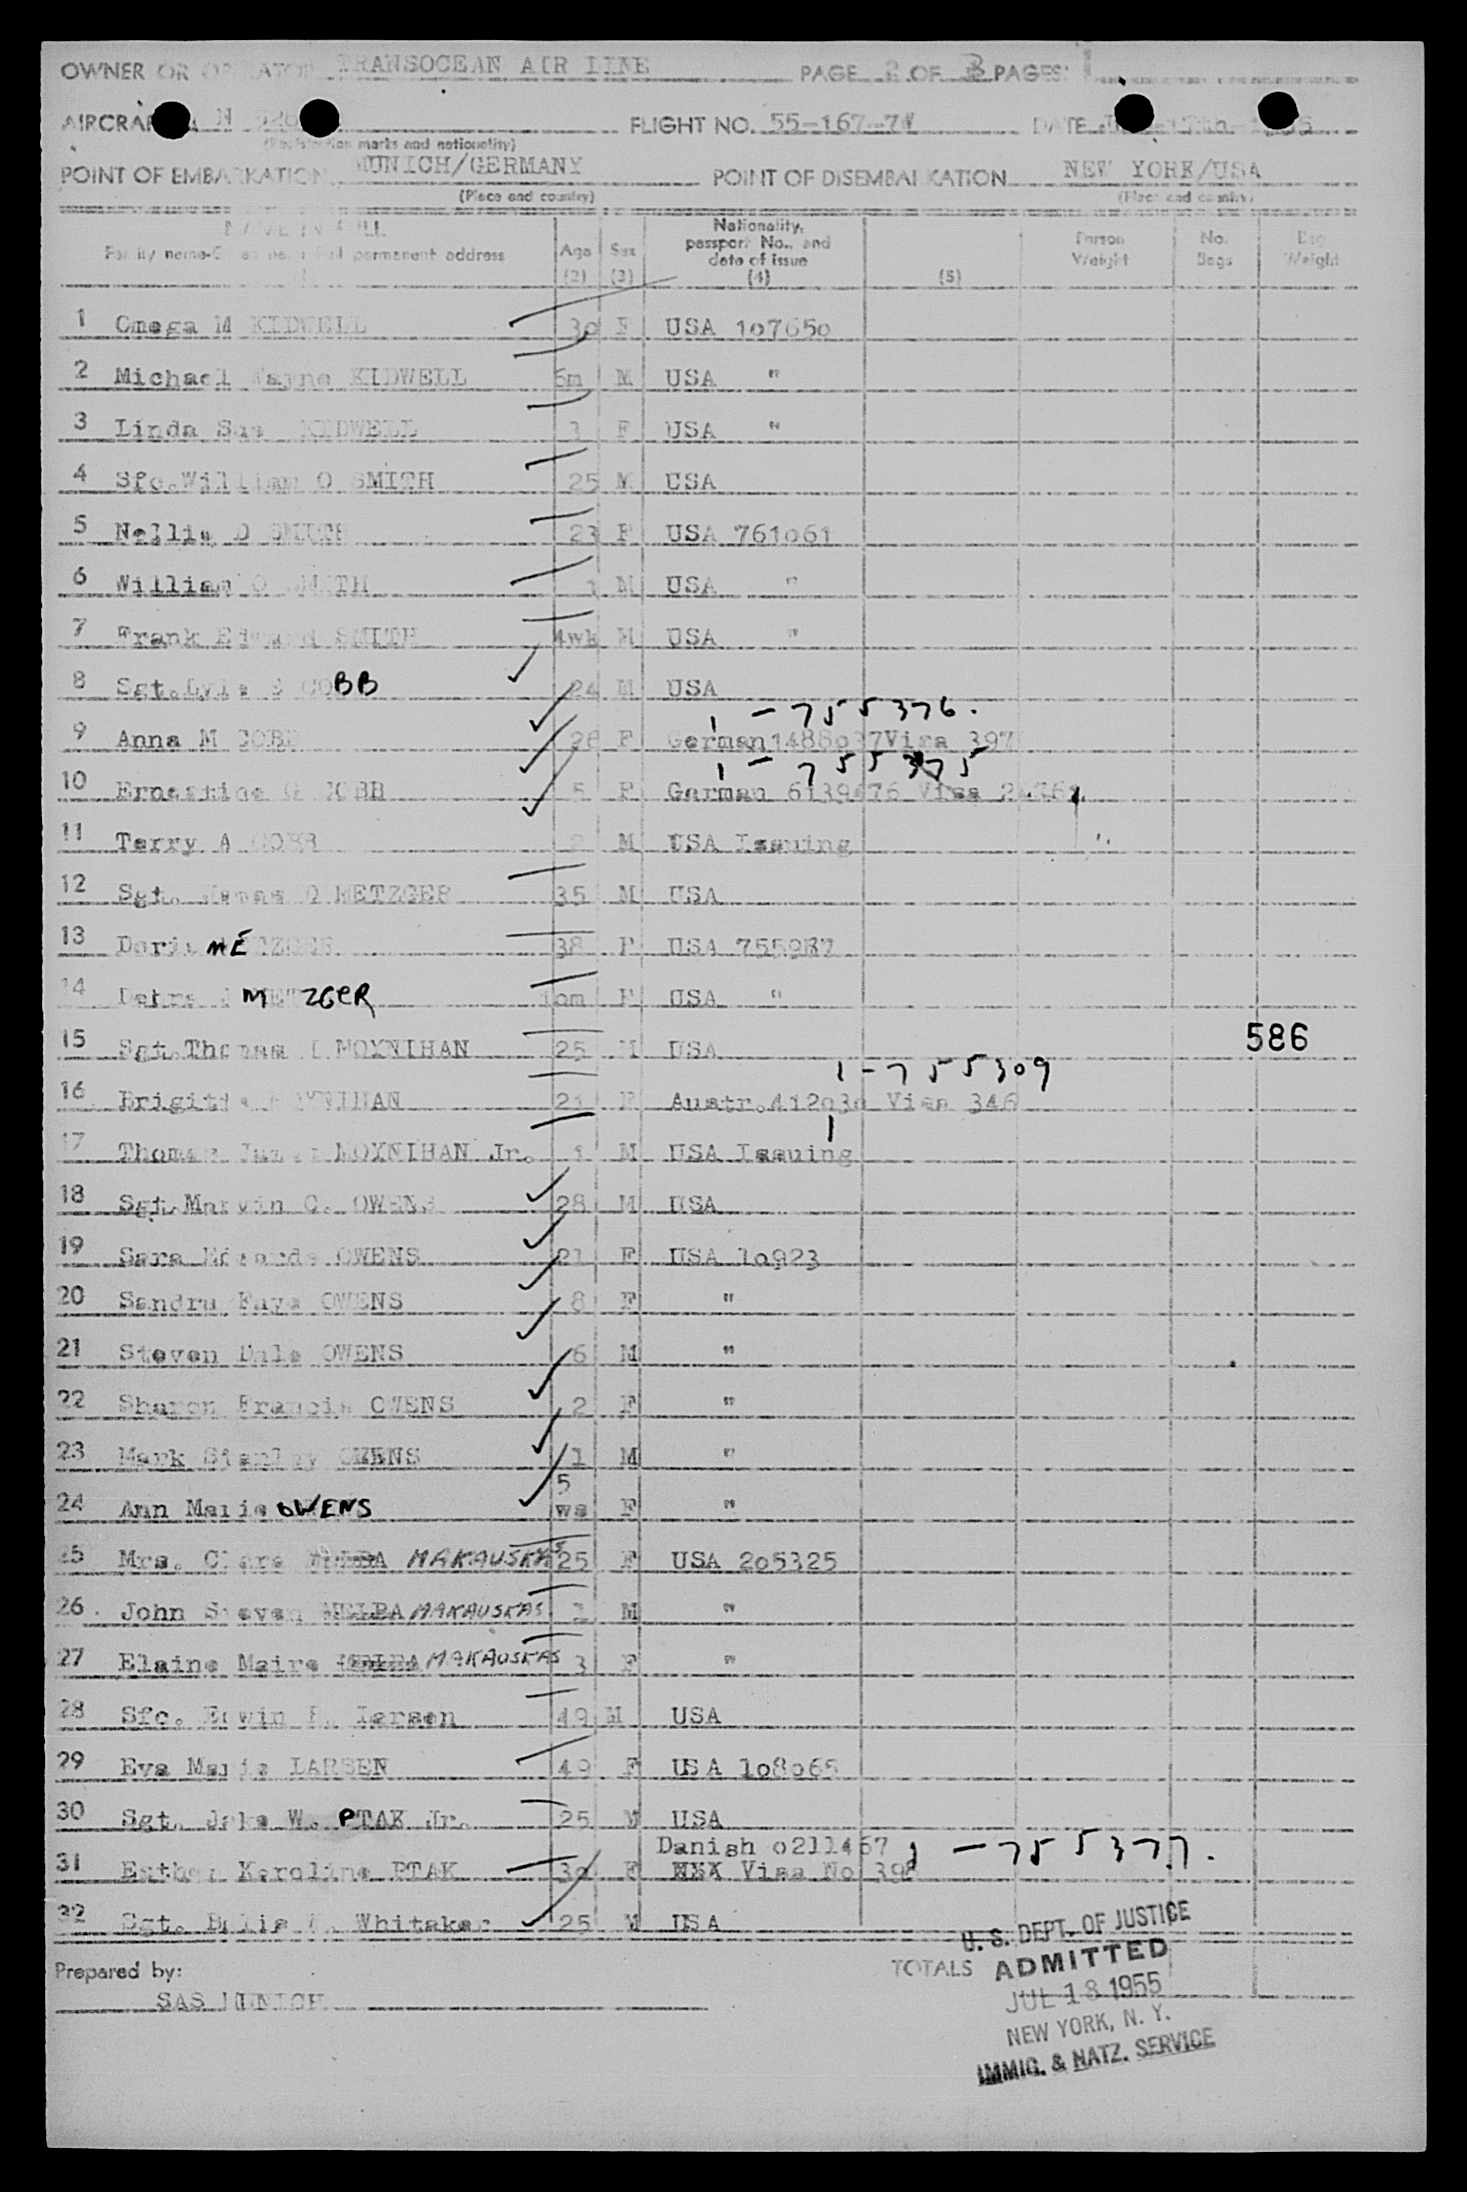 OWNER OR OPERATOR TRANSOCEAN AIR LINE PAGE 2 OF 3 PAGES
AIRCRAFT N FLIGHT NO. 55-167-7W DATE
(Registration marks and nationality)
POINT OF EMBARKATION MUNICH/GERMANY POINT OF DISEMBARKATION NEW YORK/USA
(Place and country) (Place and country)
NAME IN FULL Age Sex Nationality, passport No., and date of issue Person Weight No. Bags Bag Weight
Family name-Given name full permanent address (2) (3) (4) (5)
1 Omega M KIDWELL 3o F USA 1o765o
2 Michael Wayne KIDWELL 6m M USA "
3 Linda Sue KIDWELL 3 F USA "
4 Sfc.William O SMITH 25 M USA
5 Nellie D SMITH 23 F USA 761o61
6 William O SMITH 1 M USA "
7 Frank Edward SMITH 4wk M USA "
8 Sgt.Lyle COBB 24 M USA
1-755376.
9 Anna M COBB 28 F German Visa 397
1-755375
10 Ernestine G COBB 5 F German Visa
11 Terry A COBB 2 M USA Issuing "
12 Sgt. James O METZGER 35 M USA
13 Doris METZGER 38 F USA
14 Debra METZGER 1om F USA "
15 Sgt.Thomas MOYNIHAN 25 M USA 586
1-755309
16 Brigitte MOYNIHAN 21 F Austr. Visa 346
17 Thomas James MOYNIHAN Jr. 1 M USA Issuing
18 Sgt.Marvin C. OWENS 28 M USA
19 Sara Edwards OWENS 21 F USA 1o923
20 Sandra Faye OWENS 8 F "
21 Steven Dale OWENS 6 M "
22 Sharon Francis OWENS 2 F "
23 Mark Stanley OWENS 1 M "
24 Ann Marie OWENS 5 ws F "
25 Mrs. Clara MAKAUSKAS 25 F USA 2o5325
26 John Steven MAKAUSKAS M "
27 Elaine Maire MAKAUSKAS 3 F "
28 Sfc. Edwin Larsen 49 M USA
29 Eva Marie LARSEN 49 F USA 1o8o65
30 Sgt. Jake W. PTAK Jr. 25 M USA
Danish o211467 1-755377.
31 Esther Karoline PTAK 3o F Visa No 398
32 Sgt. Whitaker 25 M USA
U. S. DEPT. OF JUSTICE
Prepared by: TOTALS ADMITTED
SAS MUNICH JUL 18 1955
NEW YORK, N. Y.
IMMIG. & NATZ. SERVICE